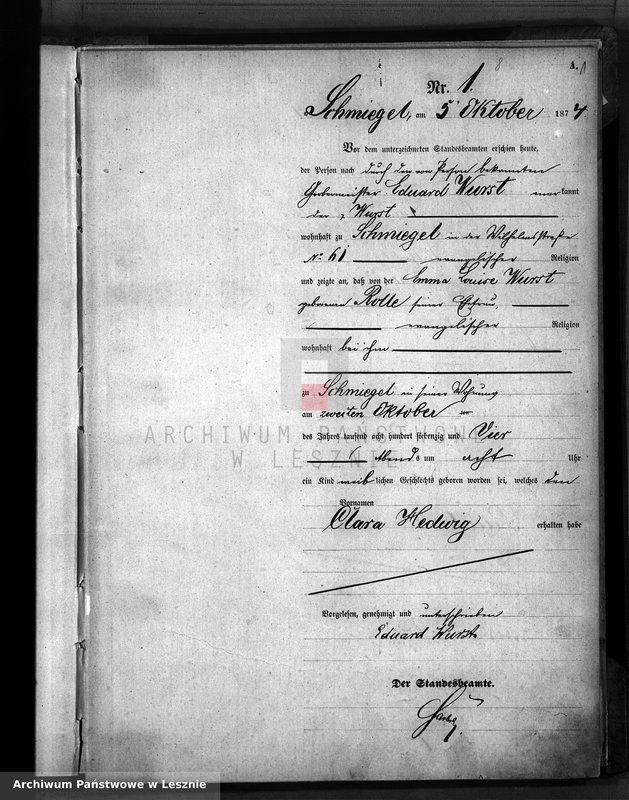 8
A. 1
Nr. 1.
Schmiegel, am 5 Oktober 1874
Vor dem unterzeichneten Standesbeamten erschien heute,
der Person nach durch den von Person bekannten
Gerbermeister Eduard Wurst anerkannt
der p. Wurst
wohnhaft zu Schmiegel in der Wilhelmstraße
No 61 evangelischer Religion
und zeigte an, daß von der Emma Louise Wurst
geborenen Rolle seiner Ehefrau,
evangelischer Religion
wohnhaft bei ihm
zu Schmiegel in seiner Wohnung
am zweiten Oktober
des Jahres tausend acht hundert siebenzig und Vier
Abends um acht Uhr
ein Kind weiblichen Geschlechts geboren worden sei, welches den
Vornamen
Clara Hedwig erhalten habe
Vorgelesen, genehmigt und unterschrieben
Eduard Wurst
Der Standesbeamte.
ARCHIWUM PAŃSTWOWE
W LESZNIE
Archiwum Państwowe w Lesznie